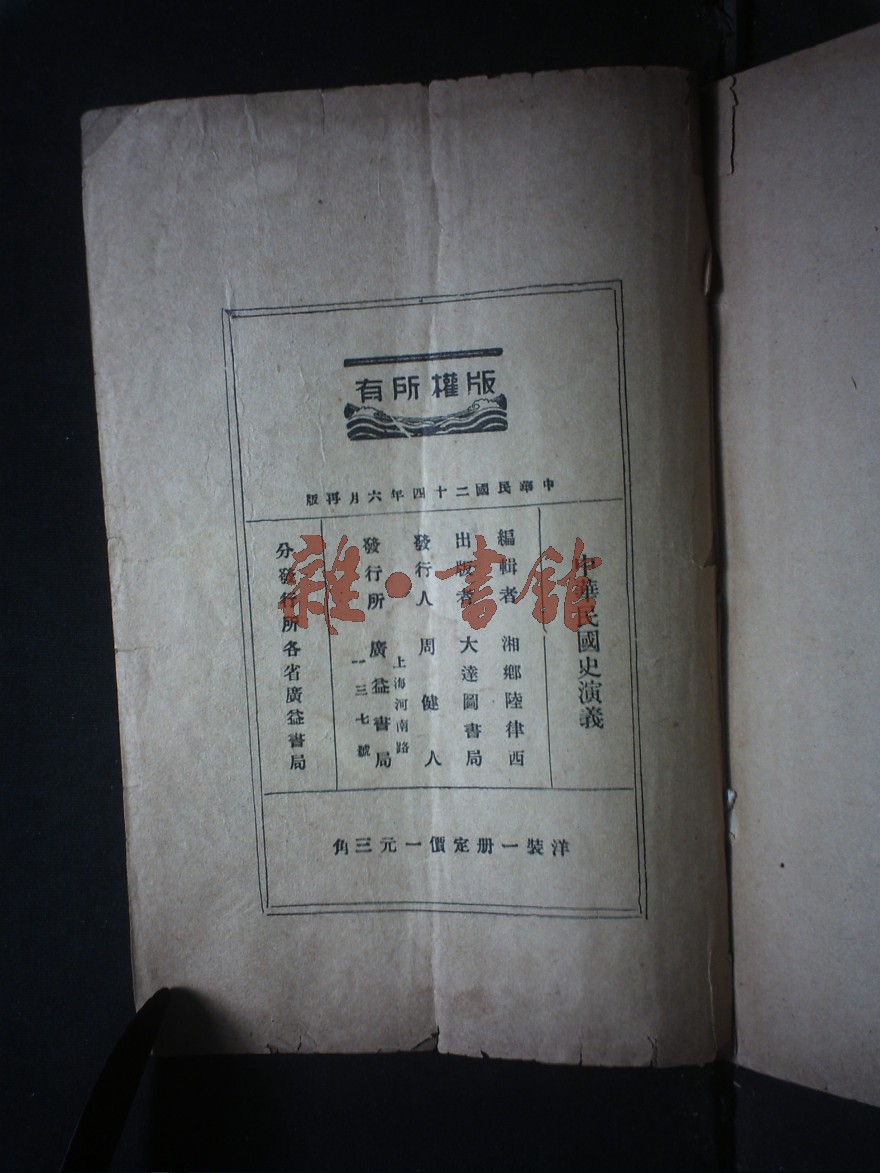 版權所有
中華民國二十四年六月再版
中華民國史演義
編輯者　湘鄉陸律西
出版者　大達圖書局
發行人　周健人
上海河南路
發行所　廣益書局
一三七號
分發行所各省廣益書局
洋裝一册定價一元三角
雜·書館